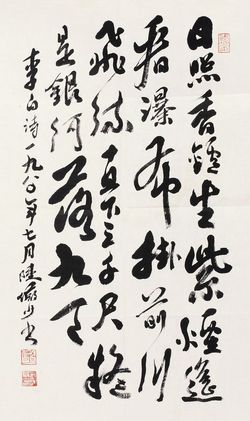 日照香鑪生紫煙遙
看瀑布掛前川
飛流直下三千尺疑
是銀河落九天
李白诗一九八〇年七月陸儼少书